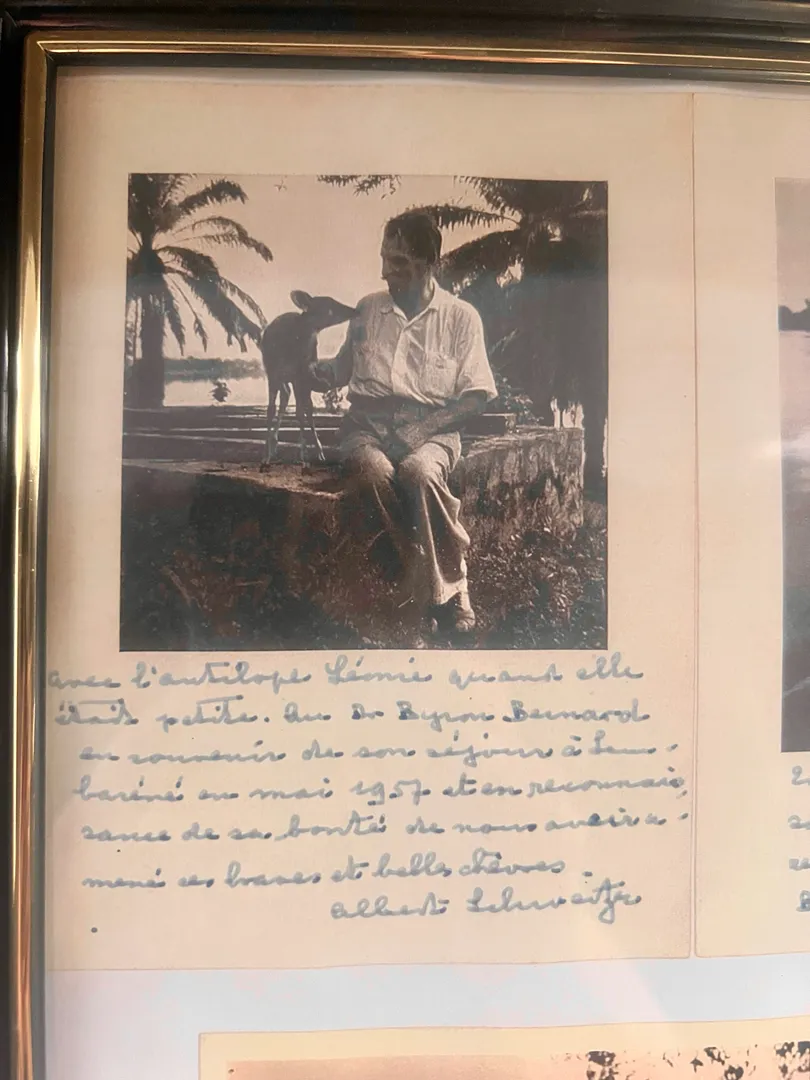 avec l'antilope Léonie quand elle
était petite. Au Dr Byron Bernard
en souvenir de son séjour à Lam-
baréné en mai 1957 et en reconnais-
sance de sa bonté de nous avoir a-
mené ces braves et belles chèvres.
Albert Schweitzer